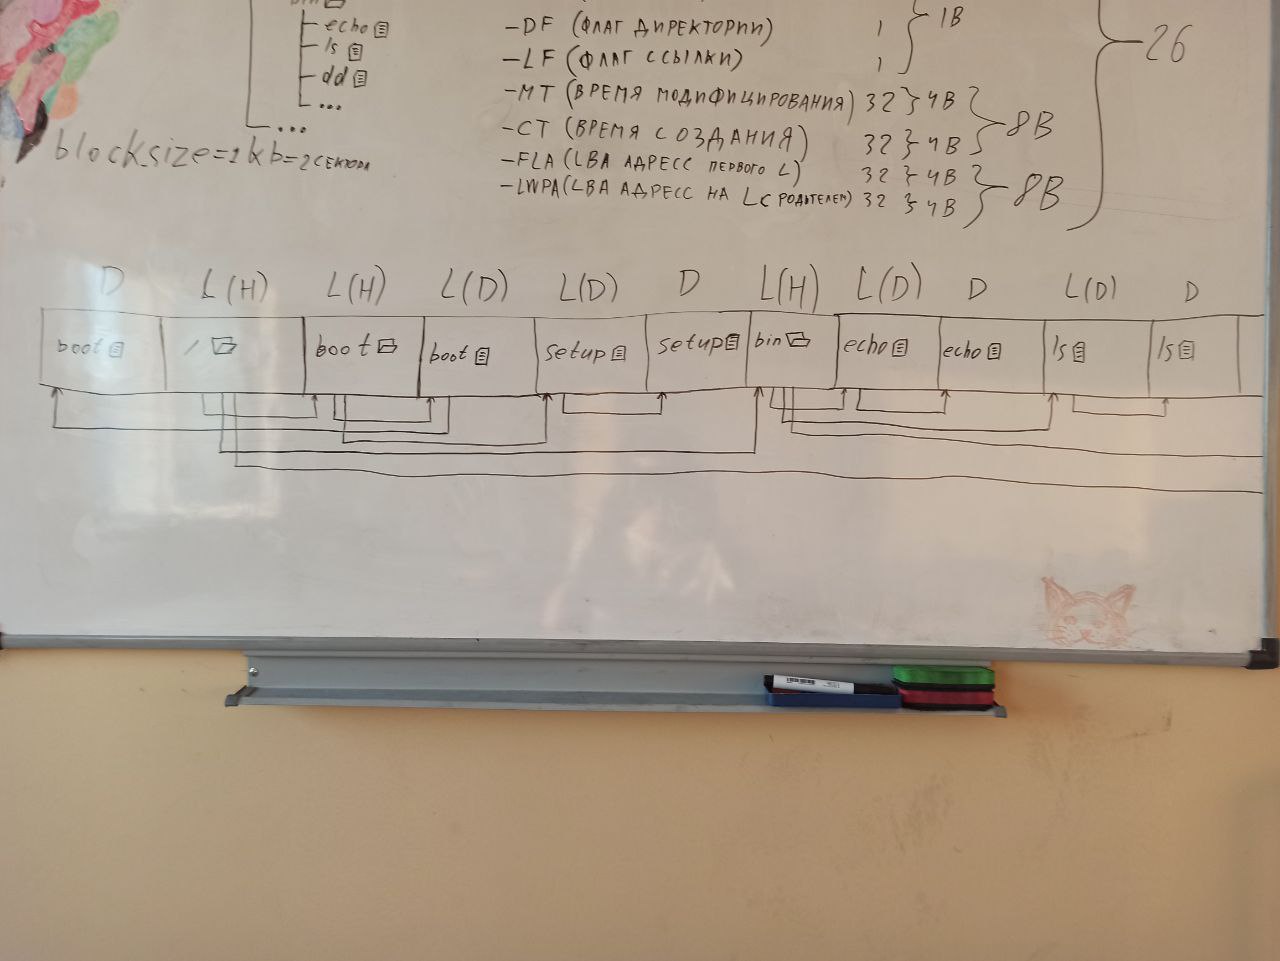 echo
ls
dd
...
...
blocksize=1kb=2 СЕКТОРА
-DF (ФЛАГ ДИРЕКТОРИИ) 1
} 1B
-LF (ФЛАГ ССЫЛКИ) 1
-MT (ВРЕМЯ МОДИФИЦИРОВАНИЯ) 32 } 4B
-CT (ВРЕМЯ СОЗДАНИЯ) 32 } 4B
} 8B
-FLA (LBA АДРЕСС ПЕРВОГО L) 32 } 4B
-LWPA (LBA АДРЕСС НА L С РОДИТЕЛЕМ) 32 } 4B
} 8B
} 26
D L(H) L(H) L(D) L(D) D L(H) L(D) D L(D) D
boot / boot boot setup setup bin echo echo ls ls